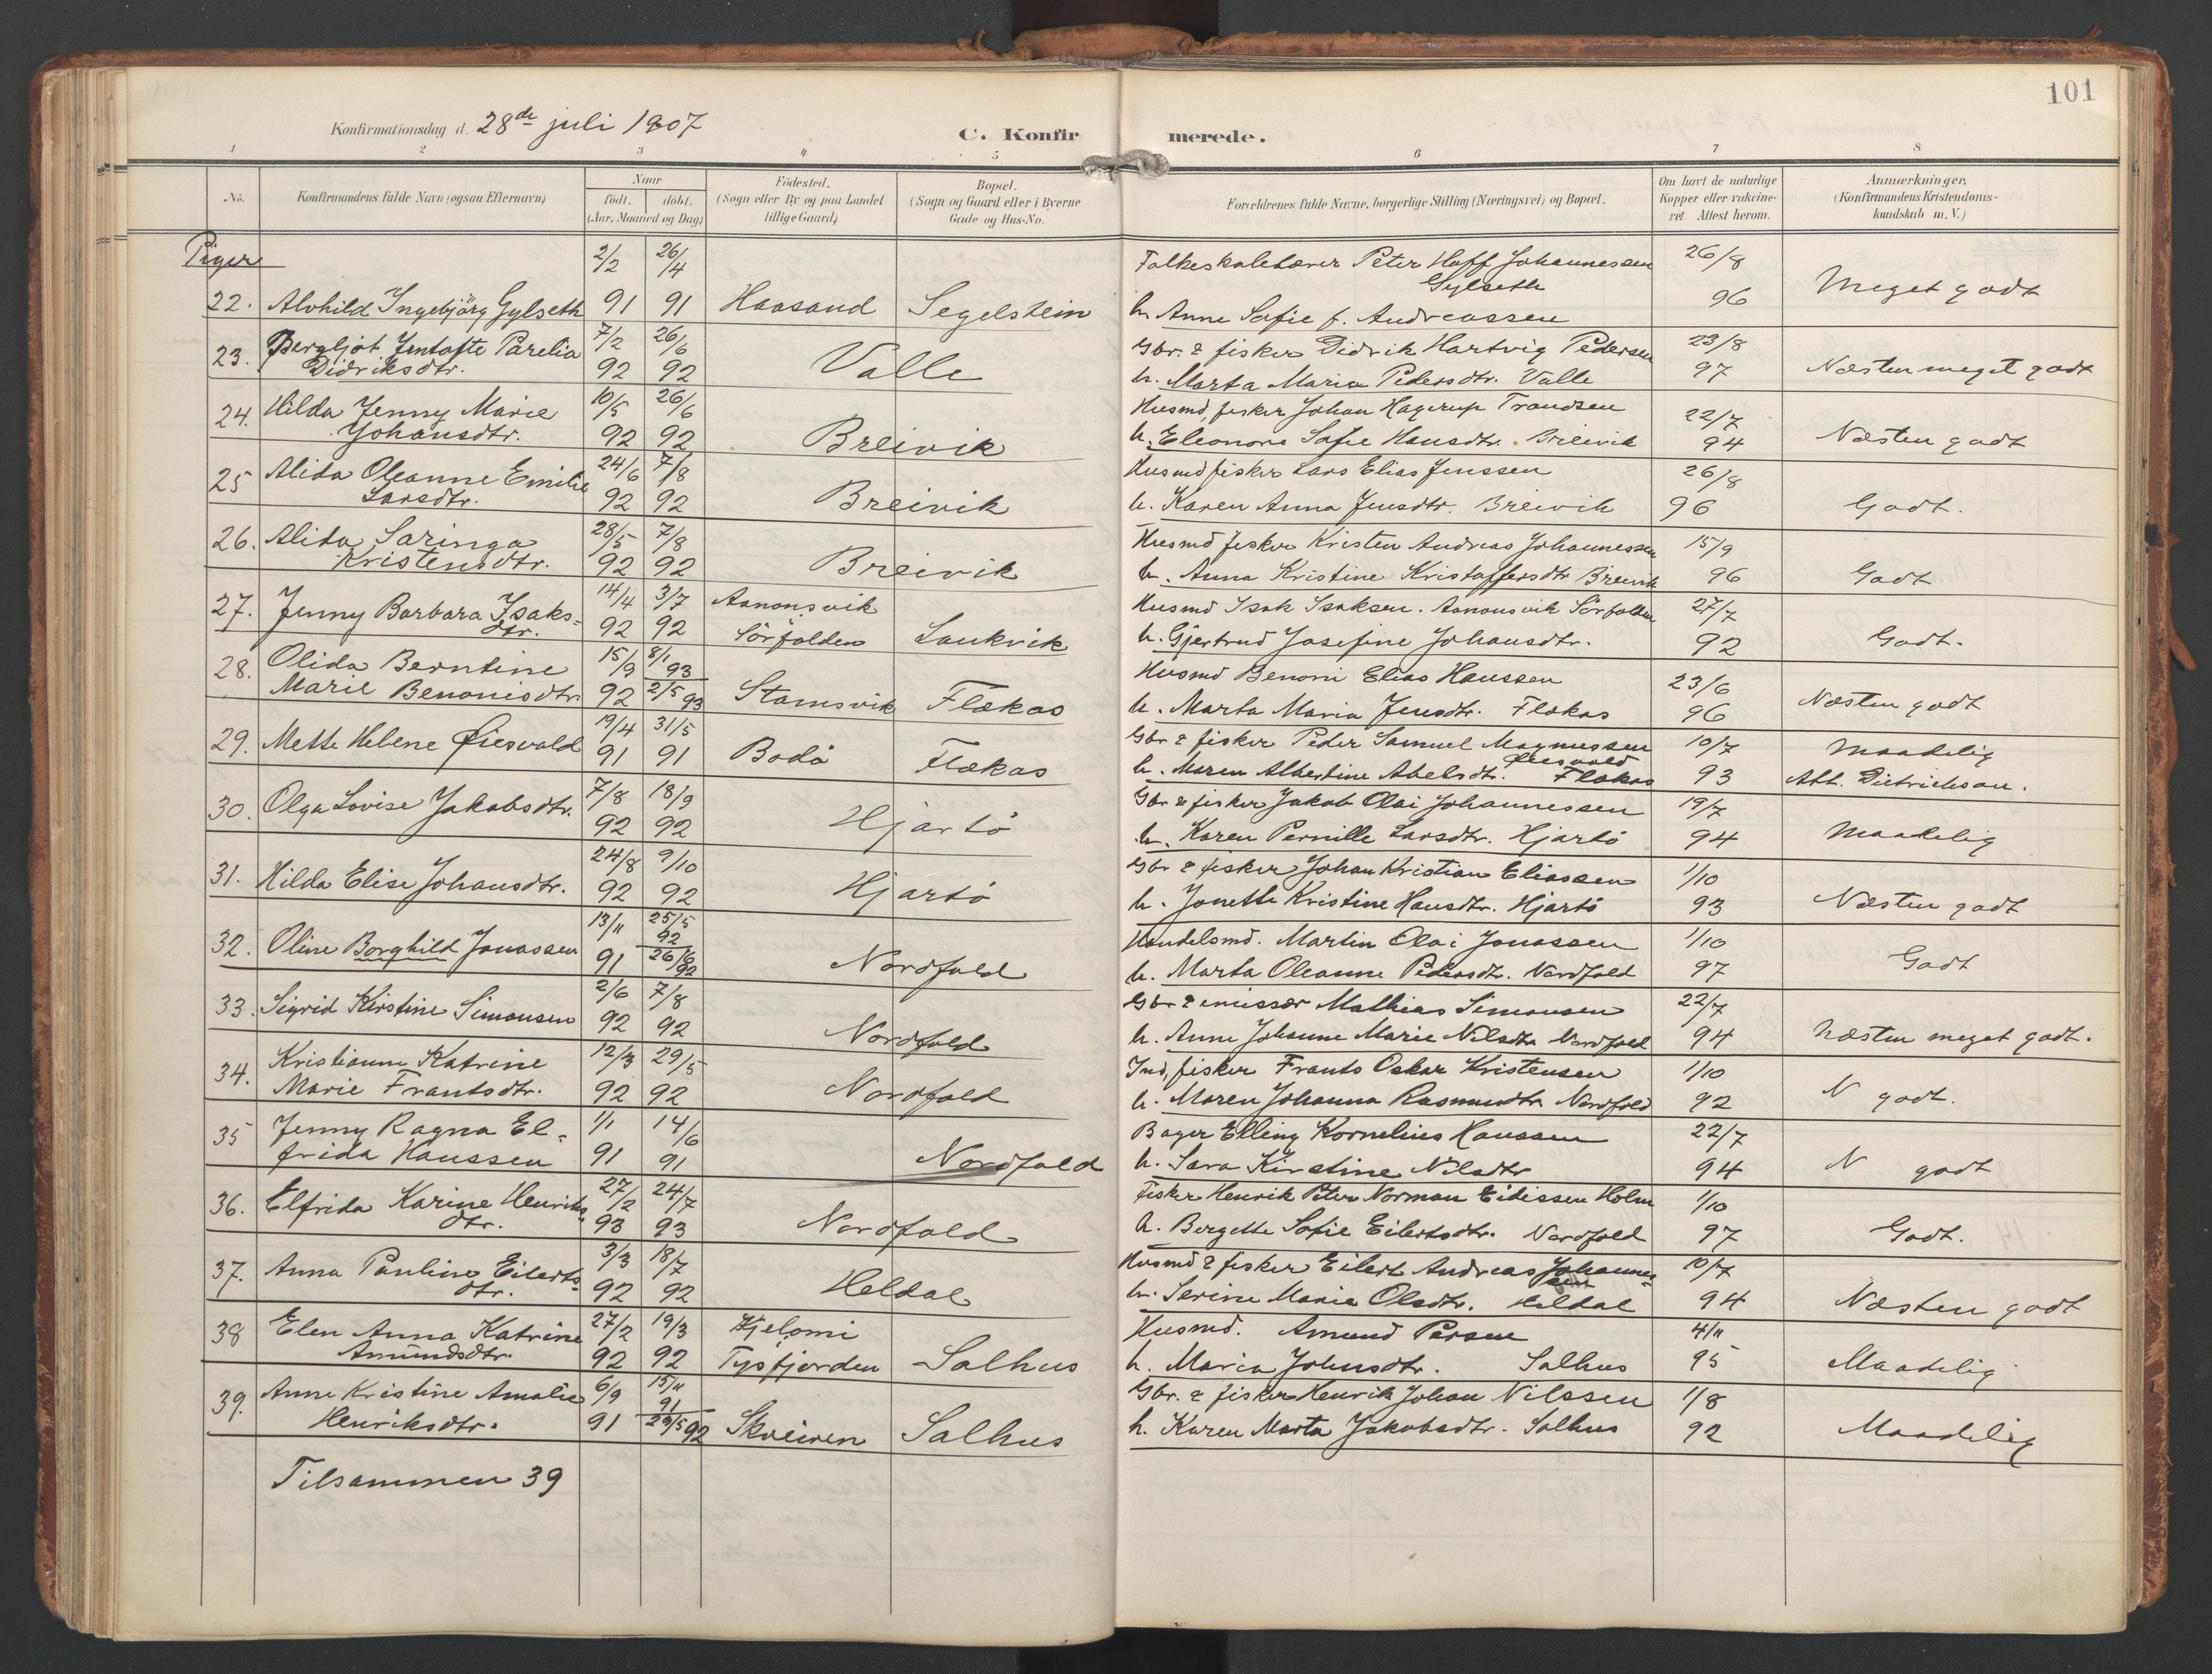 101
Konfirmationsdag d. 28de juli 1907
C. Konfirmerede.
1 2 3 4 5 6 7 8
No. | Konfirmandens fulde Navn (ogsaa Efternavn) | Naar födt. döbt. (Aar, Maaned og Dag) | Födested. (Sogn eller By og paa Landet tillige Gaard) | Bopæl. (Sogn og Gaard eller i Byerne Gade og Hus-No. | Forældrenes fulde Navne, borgerlige Stilling (Næringsvei) og Bopæl. | Om havt de naturlige Kopper eller vakcineret Attest herom. | Anmærkninger, (Konfirmandens Kristendomskundskab m. V.)
Piger
2/2 26/4 Folkeskolelærer Peter Hoff Johannessen 26/8
Gylseth
22. Alvhild Ingebjörg Gylseth 91 91 Haasand Segelstein h. Anne Sofie f. Andreassen 96 Meget godt
23. Bergljot Jentofte Parelia 7/2 26/6 Valle Gbr. & fisker Didrik Hartvig Pedersen 23/8
Didriksdtr. 92 92 h. Marta Maria Pedersdtr. Valle 97 Næsten meget godt
24. Hilda Jenny Marie 10/5 26/6 Husmd, fisker Johan Hagerup Trondsen 22/7
Johansdtr. 92 92 Breivik h. Eleonora Sofie Hansdtr. Breivik 94 Næsten godt
25 Alida Oleanne Emilie 24/6 7/8 Husmd fisker Lars Elias Jenssen 26/8
Larsdtr. 92 92 Breivik h. Karen Anna Jensdtr. Breivik 96 Godt.
26. Alida Saringa 28/5 7/8 Husmd fisker Kristen Andreas Johannessen 15/9
Kristensdtr. 92 92 Breivik h. Anna Kristine Kristoffersdtr Breivik 96 Godt
27. Jenny Barbara Isaks- 14/4 3/7 Aanonsvik Husmd Isak Isaksen. Aanonsvik Sörfolden 27/7
dtr. 92 92 Sörfolden Laukvik h. Gjertrud Josefine Johansdtr. 92 Godt.
28. Olida Berntine 15/9 8/1 93 Husmd Benoni Elias Hanssen 23/6
Marie Benonisdtr 92 2/5 93 Stamsvik Flækas h. Marta Maria Jensdtr. Flækas 96 Næsten godt
29. Mette Helene Øiesvold 19/4 31/5 Gbr & fisker Peder Samuel Magnussen 10/7 Maadelig
Øiesvold
91 91 Bodö Flækas h. Maren Albertine Abelsdtr. Flækas 93 Att. Dietrichson.
30. Olga Lovise Jakobsdtr. 7/8 18/9 Gbr & fisker Jakob Olai Johannessen 19/7
92 92 Hjartö h. Karen Pernille Larsdtr. Hjartö 94 Maadelig
31. Hilda Elise Johansdtr. 24/8 9/10 Gbr & fisker Johan Kristian Eliassen 1/10
92 92 Hjartö h. Jonette Kristine Hansdtr. Hjartö 93 Næsten godt
32. Oline Borghild Jonassen 13/11 25/5 92 Handelsmd. Martin Olai Jonassen 1/10
91 26/6 92 Nordfold h. Marta Oleanne Pedersdtr. Nordfold 97 Godt
33. Sigrid Kirstine Simonsen 2/6 7/8 Gbr & emissær Mathias Simonsen 22/7
92 92 Nordfold h. Anne Johanne Marie Nilsdtr Nordfold 94 Næsten meget godt.
34. Kristianne Katrine 12/3 29/5 Ind, fisker Frants Oskar Kristensen 1/10
Marie Frantsdtr. 92 92 Nordfold h. Maren Johanna Rasmusdtr Nordfold 92 N godt.
35 Jenny Ragna El- 1/1 14/6 Bager Elling Kornelius Hanssen 22/7
frida Hanssen 91 91 Nordfold h. Sara Kirstine Nilsdtr 94 N godt
36. Elfrida Karine Henriks- 27/2 24/7 Fisker Henrik Peter Norman Eidissen Holm 1/10
dtr. 93 93 Nordfold h. Bergette Sofie Eilertsdtr. Nordfold 97 Godt.
37. Anna Pauline Eilerts- 3/3 18/7 Husmd & fisker Eilert Andreas Johannes- 10/7
sen
dtr. 92 92 Heldal h. Serine Marie Olsdtr. Heldal 94 Næsten godt
38 Elen Anna Katrine 27/2 19/3 Kjelomi Husmd. Amund Persen 4/11
Amundsdtr. 92 92 Tysfjorden Salhus h. Maria Johnsdtr. Salhus 95 Maadelig
39. Anne Kristine Amalie 6/9 15/11 91 Gbr. & fisker Henrik Johan Nilssen 1/8
Henriksdtr. 91 29/5 92 Skreiven Salhus h. Karen Marta Jakobsdtr. Salhus 92 Maadelig
Tilsammen 39